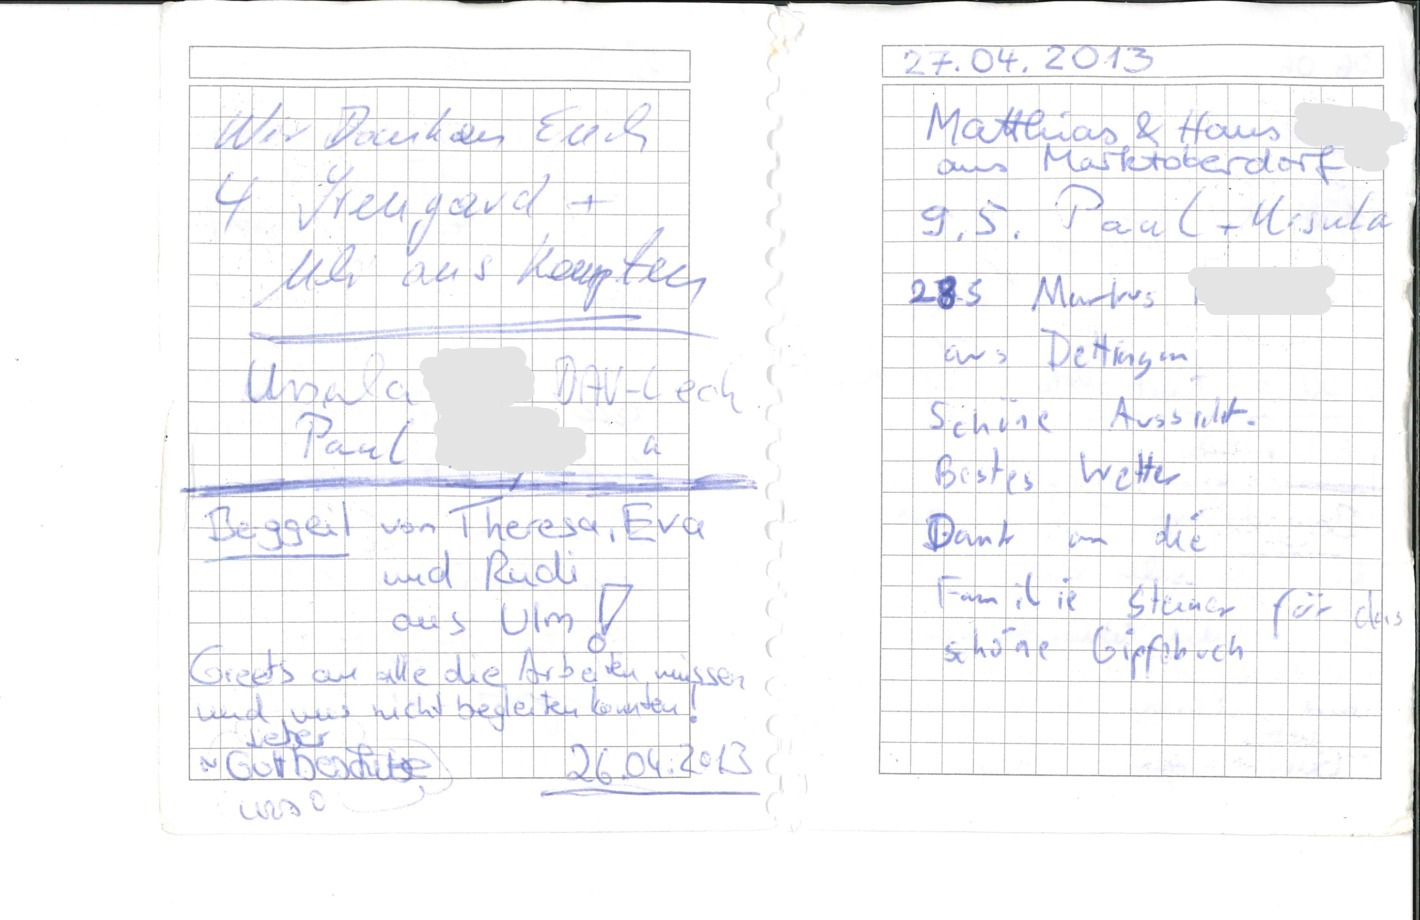 Wir Danken Euch
4 Irmgard +
Uli aus Kempten
Ursula DAV-Lech
Paul "
Beggeil von Theresa, Eva
und Rudi
aus Ulm!
Greets an alle die Arbeiten müssen
und uns nicht begleiten konnten!
~ Gott beschütze
uns
26.04.2013
27.04.2013
Matthias & Hans
aus Marktoberdorf
9.5. Paul + Ursula
28.5 Markus
aus Dettingen
Schöne Aussicht.
Bestes Wetter
Dank an die
Familie Steiner für das
schöne Gipfelbuch